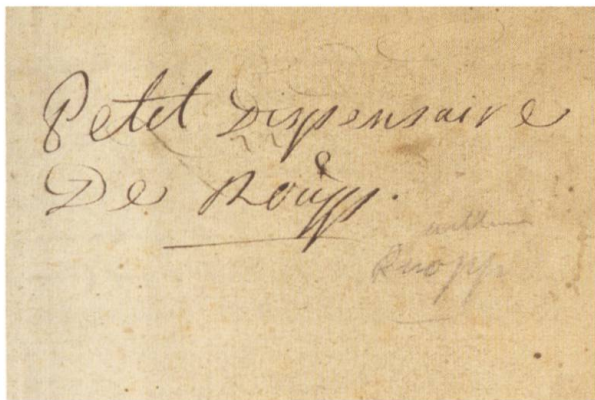 Petit Dispensaire
De Roüpp.
Ruopp